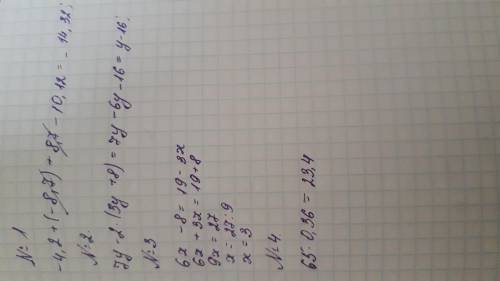 № 1
-4,2 + (-8,7) + 8,7 - 10,12 = - 14,32;
№ 2
7y - 2 · (3y + 8) = 7y - 6y - 16 = y - 16;
№ 3
6x - 8 = 19 - 3x
6x + 3x = 19 + 8
9x = 27
x = 27 : 9
x = 3
№ 4
65 · 0,36 = 23,4